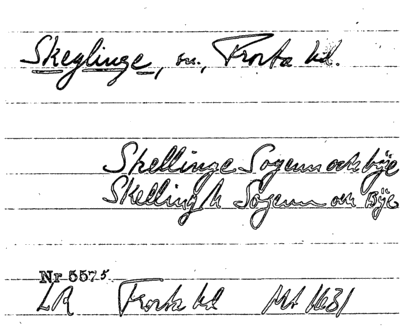 Skeglinge, sn., Frosta hd.
Skellinge Sogenn och bÿe
Skelling h Sogenn och Bÿe
Nr 557⁵
LR Frosta hd Mt 1631